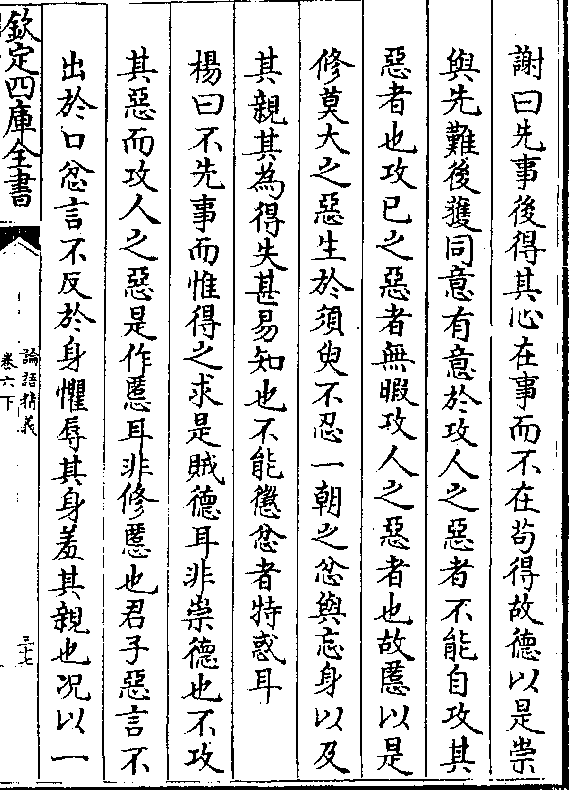 謝曰先事後得其心在事而不在茍得故德以是崇
與先難後獲同意有意於攻人之惡者不能自攻其
惡者也攻已之惡者無暇攻人之惡者也故慝以是
修莫大之惡生於須臾不忍一朝之忿與忘身以及
其親其為得失甚易知也不能懲忿者特惑耳
楊曰不先事而惟得之求是賊德耳非崇德也不攻
其惡而攻人之惡是作慝耳非修慝也君子惡言不
出於口忿言不反於身懼辱其身羞其親也况以一
欽定四庫全書
論語精義
卷六下
三十七